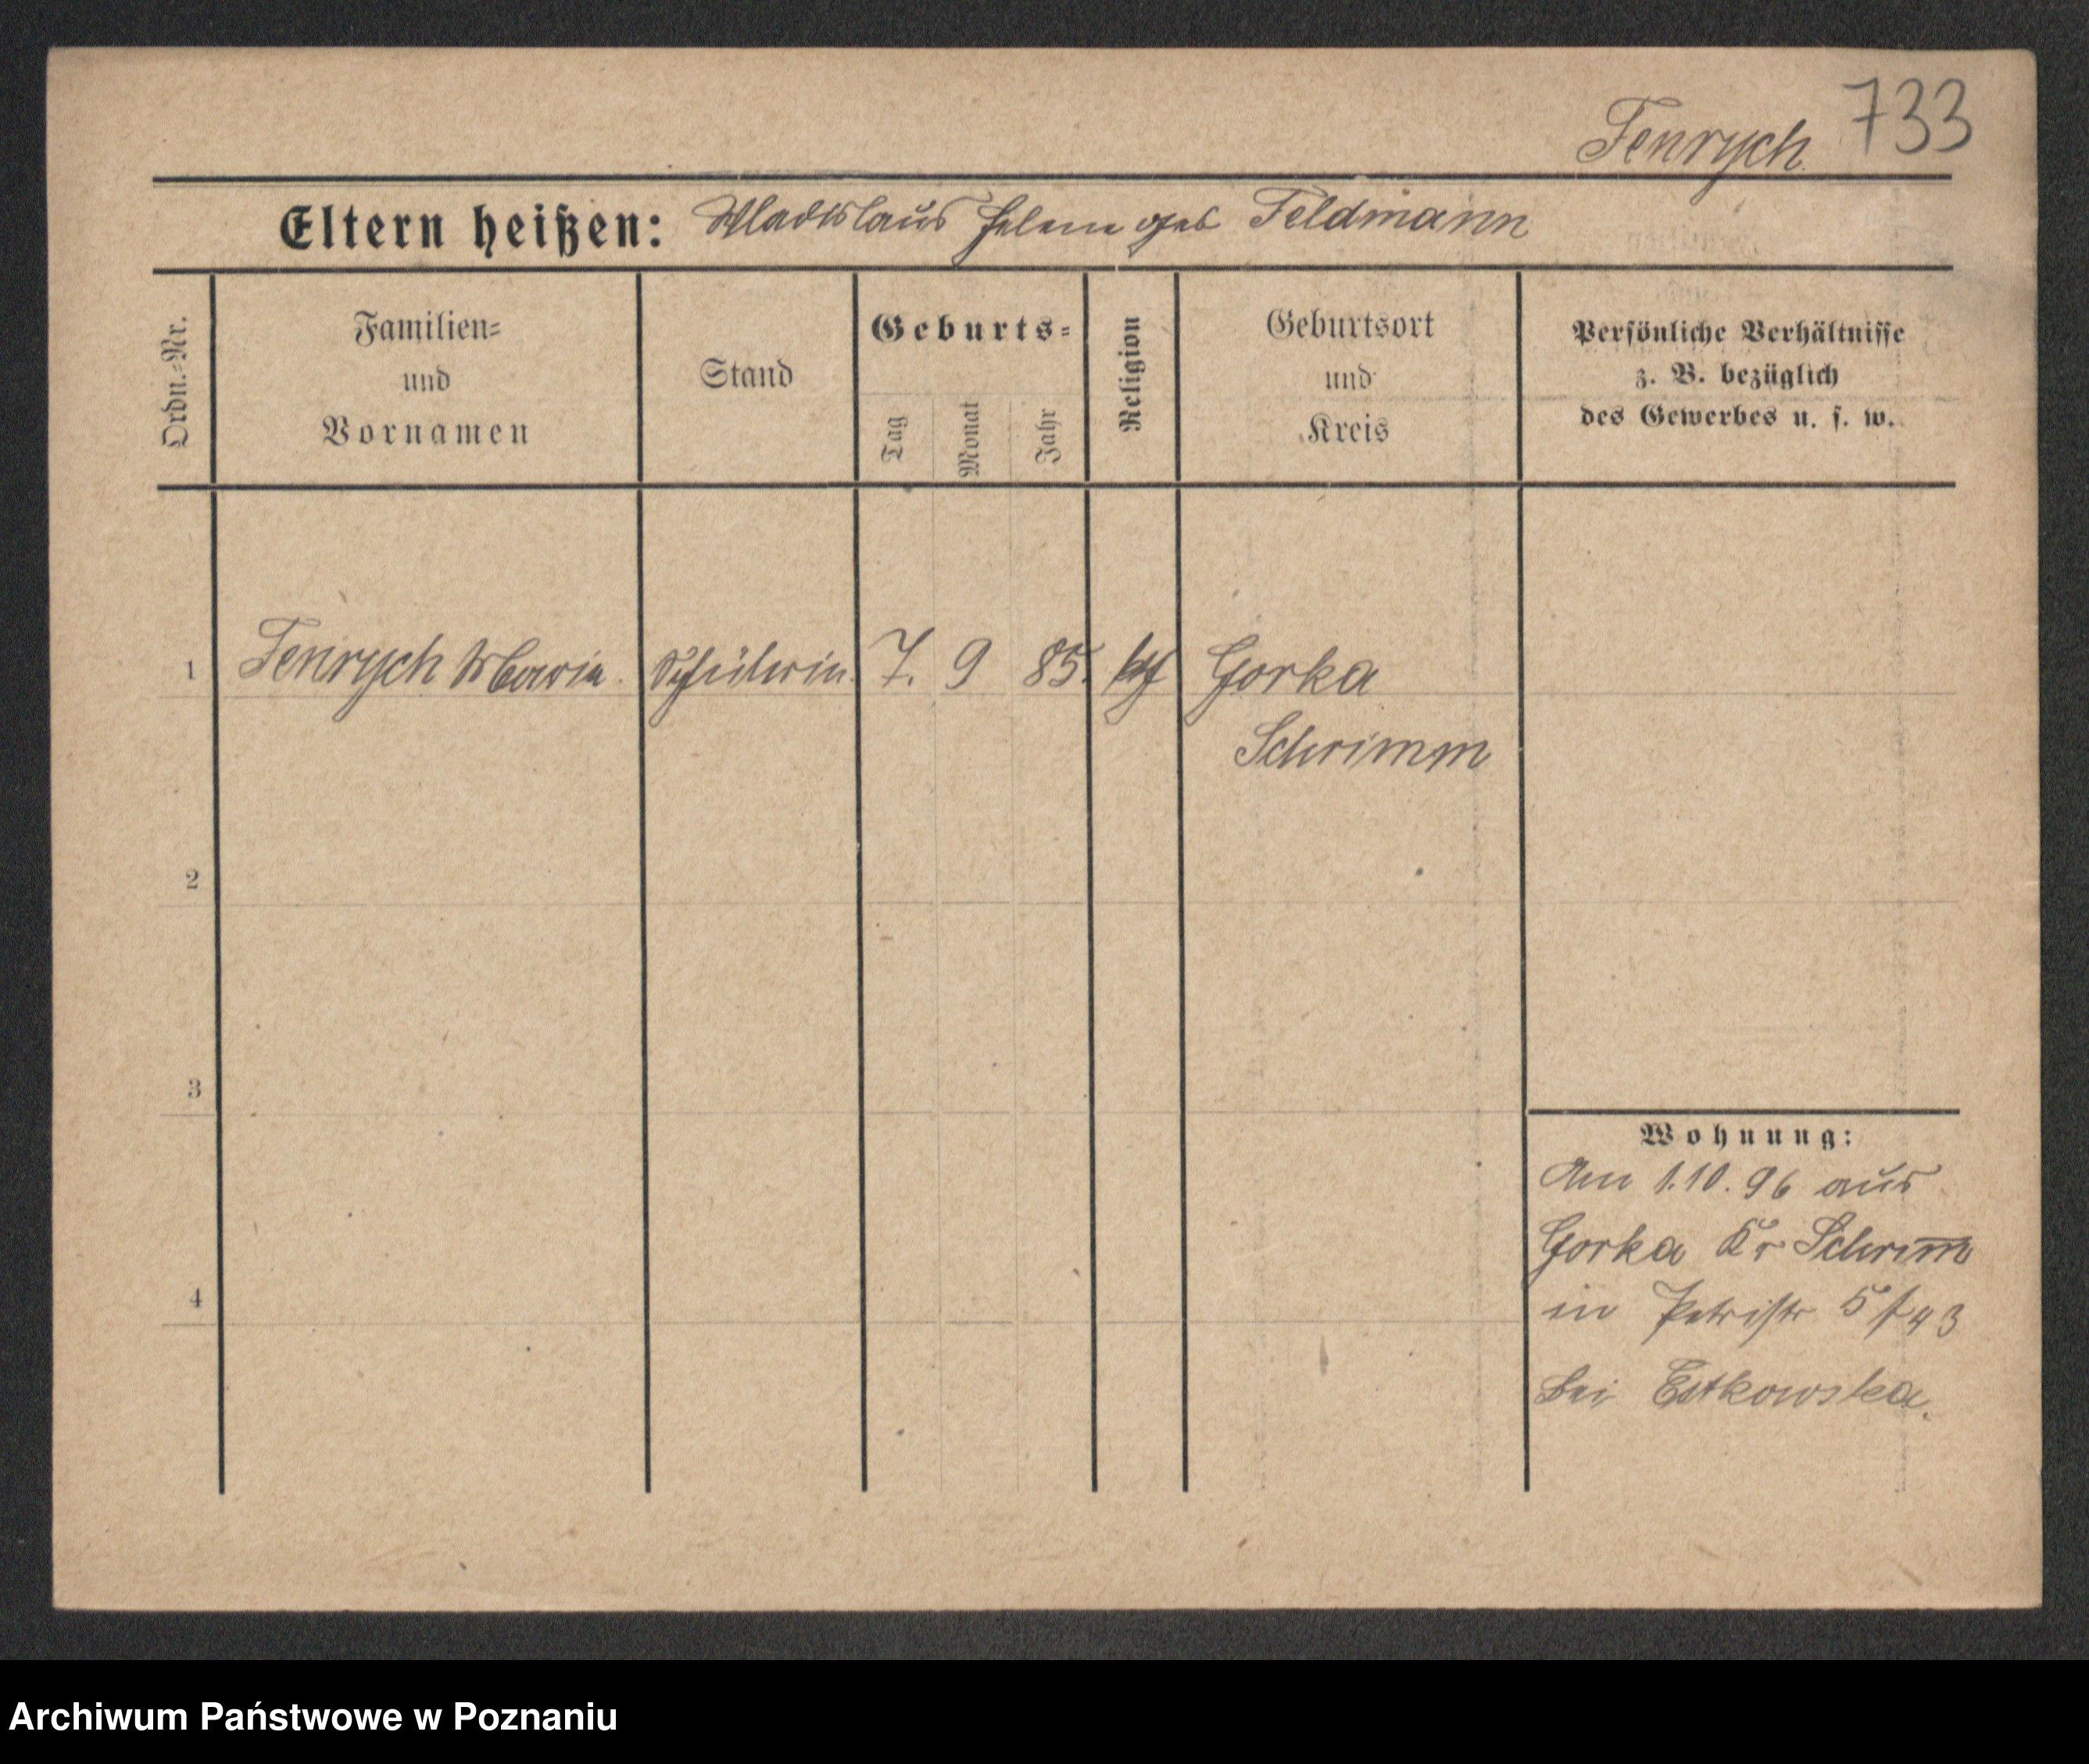 733
Fenrych
Eltern heißen: Wladislaus Helene geb Feldmann
Ordn.=Nr.
Familien=
und
Vornamen
Stand
Geburts=
Tag
Monat
Jahr
Religion
Geburtsort
und
Kreis
Persönliche Verhältnisse
z. B. bezüglich
des Gewerbes u. s. w.
1 Fenrych Maria. Schülerin. 7. 9 85. kth Gorka
Schrimm
2
3
4
Wohnung:
Am 1.10.96 aus
Gorka Kr Schrim̅
in Petristr 5
bei Estkowska.
Archiwum Państwowe w Poznaniu